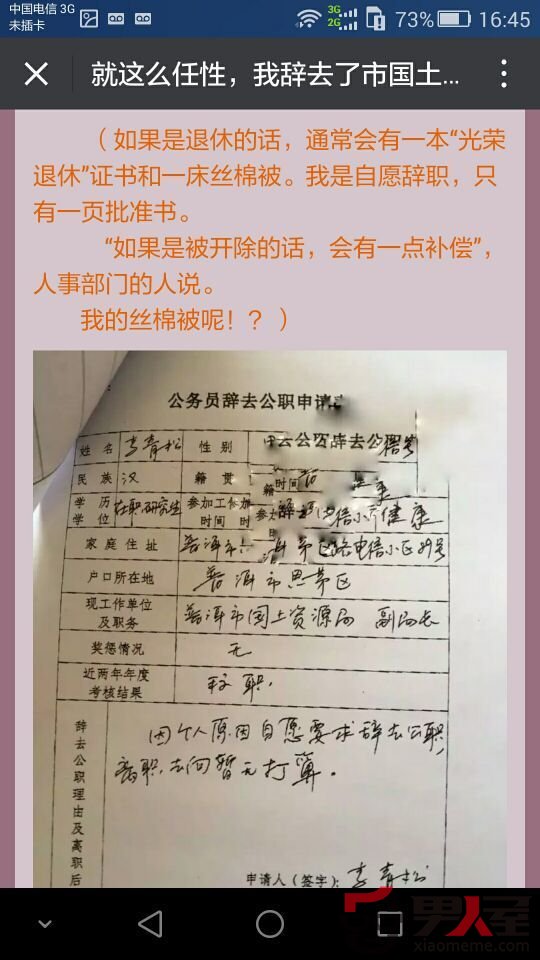 中国电信 3G
未插卡
3G
2G
73%
16:45
就这么任性，我辞去了市国土...
（如果是退休的话，通常会有一本“光荣
退休”证书和一床丝棉被。我是自愿辞职，只
有一页批准书。
“如果是被开除的话，会有一点补偿”，
人事部门的人说。
我的丝棉被呢！？）
公务员辞去公职申请
姓名 李青松 性别
民族 汉 籍贯 时间
学历
学位
在职研究生 参加工作
时间 健康
家庭住址 普洱市 电信小区39号
户口所在地 普洱市思茅区
现工作单位
及职务
普洱市国土资源局 副局长
奖惩情况 无
近两年年度
考核结果
称职.
辞去公职理由及离职后
因个人原因自愿要求辞去公职,
离职去向暂无打算.
申请人（签字）：李青松
男人屋
xiaomeme.com